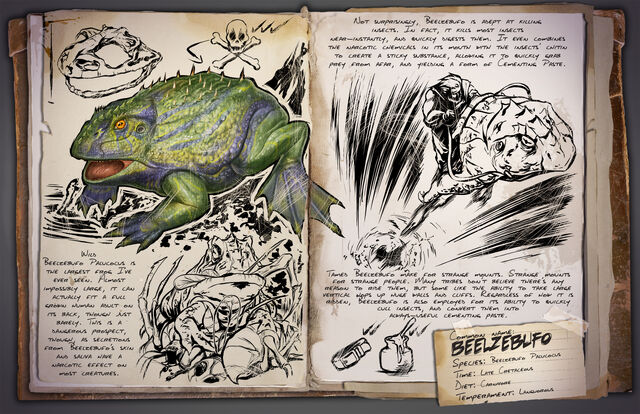 Wild
Beelzebufo Palucocus is
the largest frog I've
ever seen. Almost
impossibly large, it can
actually fit a full
grown human adult on
its back, though just
barely. This is a
dangerous prospect,
though, as secretions
from Beelzebufo's skin
and saliva have a
narcotic effect on
most creatures.
Not surprisingly, Beelzebufo is adept at killing
insects. In fact, it kills most insects
near-instantly, and quickly digests them. It even combines
the narcotic chemicals in its mouth with the insects' chitin
to create a sticky substance, allowing it to quickly grab
prey from afar, and yielding a form of Cementing Paste.
Tamed Beelzebufo make for strange mounts. Strange mounts
for strange people. Many tribes don't believe there's any
reason to ride them, but some like the ability to take large
vertical hops up huge walls and cliffs. Regardless of how it is
ridden, Beelzebufo is also employed for its ability to quickly
cull insects, and convert them into
always-useful cementing paste.
Common Name:
BEELZEBUFO
Species: Beelzebufo Palucocus
Time: Late Cretaceous
Diet: Carnivore
Temperament: Languorous